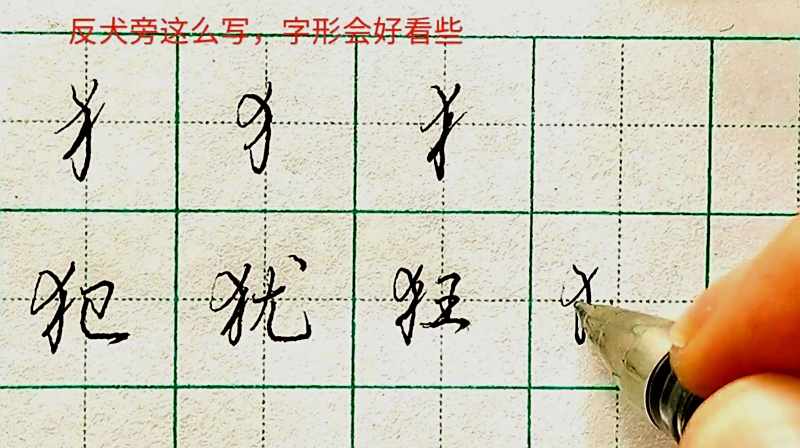 反犬旁这么写，字形会好看些
犭 犭 犭
犯 犹 狂 犭